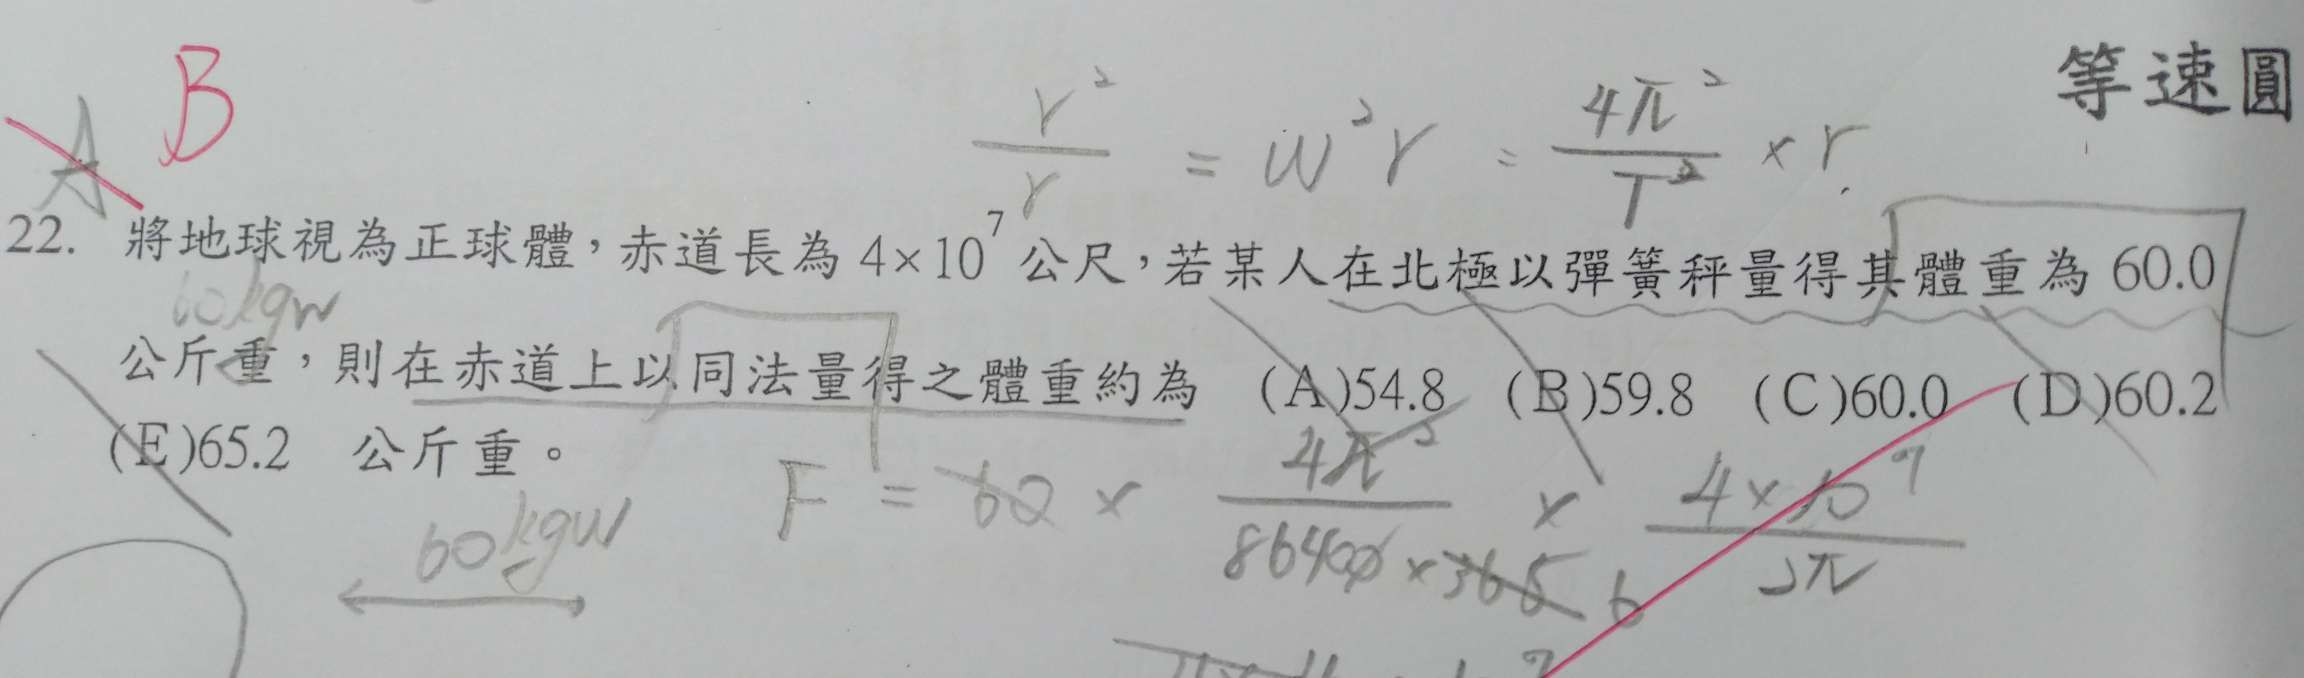 等速圓
B
A
r² / r = w²r = 4π² / T² × r
22. 將地球視為正球體，赤道長為 4×10⁷ 公尺，若某人在北極以彈簧秤量得其體重為 60.0
60kgw
公斤重，則在赤道上以同法量得之體重約為 (A)54.8 (B)59.8 (C)60.0 (D)60.2
(E)65.2 公斤重。
F = 60 × 4π² / 86400 × 365 × 4×10⁷ / 2π
60kgw
6